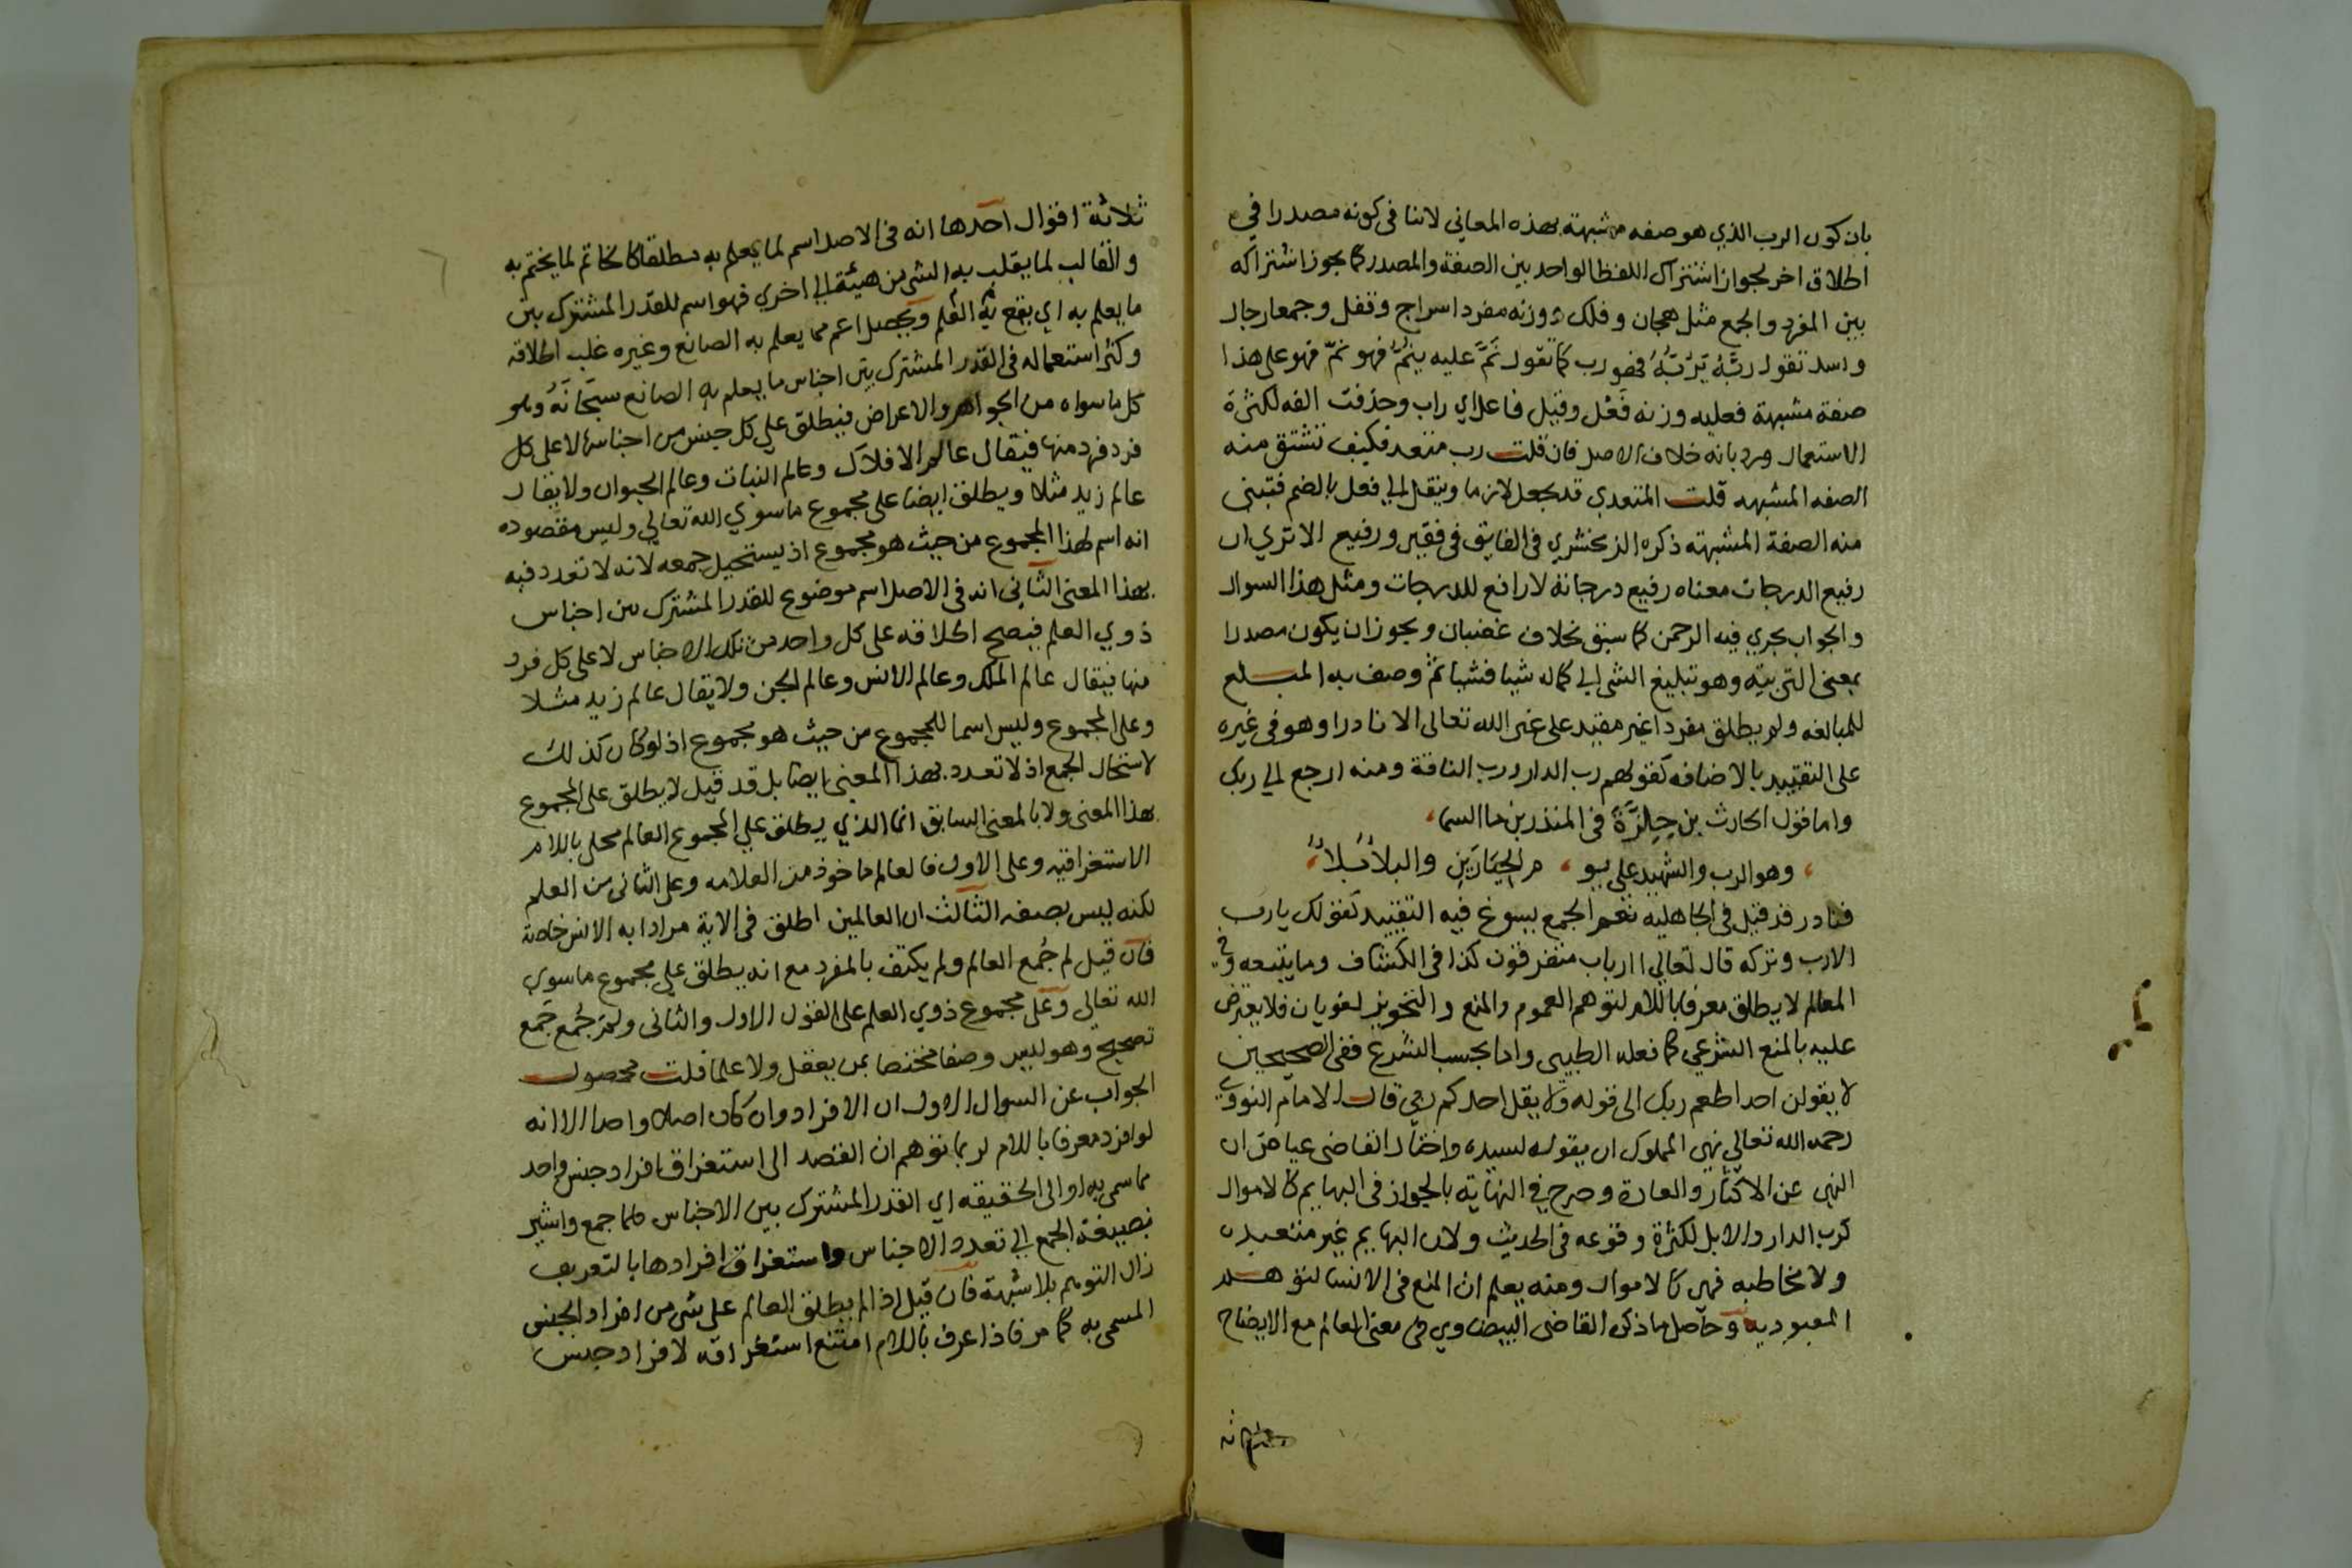 بان كون الرب الذي هو صفه مشبهة بهذه المعاني لاننا فى كونه مصدرا في
اطلاق اخر لجواز اشتراك اللفظ الواحد بين الصفة والمصدر كما يجوز اشتراكه
بين المفرد والجمع مثل هجان وفلك ووزنه مفردا سراج وقفل وجمعا رجال
واسد تقول ربَّهُ يَرُبُّهُ فهو رب كما تقول نَمَّ عليه ينمُّ فهو نمّ فهو على هذا
صفة مشبهة فعليه وزنه فَعْل وقيل فاعل اي راب وحذفت الفه لكثرة
الاستعمال ورد بانه خلاف الاصل فان قلت رب متعد فكيف تشتق منه
الصفه المشبهه قلت المتعدي قد يجعل لازما وينقل الي فعل بالضم فتبنى
منه الصفة المشبهته ذكره الزمخشري فى الفايق فى فقير ورفيع الا تري ان
رفيع الدرجات معناه رفيع درجاته لا رافع للدرجات ومثل هذا السوال
والجواب يجري فيه الرحمن كما سبق بخلاف غضبان ويجوز ان يكون مصدرا
بمعنى التربيته وهو تبليغ الشى الي كماله شيا فشيا ثم وصف به المبلغ
للمبالغه ولم يطلق مفردا غير مقيد على غير الله تعالى الا نادرا وهو فى غيره
على التقييد بالاضافه كقولهم رب الدار ورب الناقة ومنه ارجع الي ربك
واما قول الحارث بن حِلِزَّةَ فى المنذر بن ما السما،
، وهو الرب والشهيد على يو ، م الحِيَارَيْنِ والبلاُ بَلاُ،
فنادر قد قيل فى الجاهليه نعم الجمع يسوغ فيه التقييد كقولك يا رب
الارب وتركه قال تعالي اارباب متفرقون كذا فى الكشاف وما يتبعه وفي
المعالم لا يطلق معرفا باللام لتوهم العموم والمنع والتجويز لغويان فلا يعترض
عليه بالمنع الشرعي كما فعله الطيبى واما بحسب الشرع ففى الصحيحين
لا يقولن احد اطعم ربك الى قوله ولا يقل احدكم ربي قال الامام النووي
رحمه الله تعالي نهى المملوك ان يقول لسيده واختار القاضى عياض ان
النهى عن الاكثار والعادة وصرح في النهاية بالجواز فى البهايم كالاموال
كرب الدار والابل لكثرة وقوعه فى الحديث ولان البهايم غير متعبده
ولا مخاطبه فهى كالاموال ومنه يعلم ان المنع فى الانسا لتوهم
المعبوديه وحاصل ما ذكره القاضى البيضاوي فى معنى العالم مع الايضاح
ثلاثة اقوال احدها انه فى الاصل اسم لما يعلم به مطلقا كالخاتم لما يختم به
والقالب لما يقلب به الشى من هيئة الي اخري فهو اسم للقدر المشترك بين
ما يعلم به اي يقع به العلم ويحصل اعم مما يعلم به الصانع وغيره غلب اطلاقه
وكثر استعماله فى القدر المشترك بين اجناس ما يعلم به الصانع سبحانه وهو
كل ما سواه من الجواهر والاعراض فيطلق علي كل جنس من اجناسه لا على كل
فرد فرد منها فيقال عالم الافلاك وعالم النبات وعالم الحيوان ولا يقال
عالم زيد مثلا ويطلق ايضا على مجموع ما سوي الله تعالي وليس مقصوده
انه اسم لهذا المجموع من حيث هو مجموع اذ يستحيل جمعه لانه لا تعدد فيه
بهذا المعنى الثاني انه فى الاصل اسم موضوع للقدر المشترك بين اجناس
ذوي العلم فيصح اطلاقه على كل واحد من تلك الاجناس لا على كل فرد
منها فيقال عالم الملك وعالم الانس وعالم الجن ولا يقال عالم زيد مثلا
وعلى المجموع وليس اسما للمجموع من حيث هو مجموع اذ لو كان كذلك
لاستحال الجمع اذ لا تعدد بهذا المعنى ايضا بل قد قيل لا يطلق على المجموع
بهذا المعنى ولا بالمعنى السابق انما الذي يطلق علي المجموع العالم محلى باللام
الاستغراقيه وعلى الاول فالعالم ماخوذ من العلامه وعلى الثانى من العلم
لكنه ليس بصفه الثالث ان العالمين اطلق فى الاية مرادا به الانس خاصة
فان قيل لم جُمع العالم ولم يكتف بالمفرد مع انه يطلق علي مجموع ما سوي
الله تعالي وعلى مجموع ذوي العلم على القول الاول والثانى ولم جُمع جَمع
تصحيح وهو ليس وصفا مختصا بمن يعقل ولا علما قلت محصول
الجواب عن السوال الاول ان الافراد وان كان اصلا واصلا الا انه
لو افرد معرفا باللام لربما توهم ان القصد الى استغراق افراد جنس واحد
مما سمى به او الى الحقيقه اي القدر المشترك بين الاجناس فلما جمع واشير
بصيغة الجمع الي تعدد الاجناس واستغراق افرادها بالتعريف
زال التوهم بلا شبهة فان قيل اذا لم يطلق العالم على شى من افراد الجنس
المسمى به كما مر فاذا عرف باللام امتنع استغراقه لافراد جنس